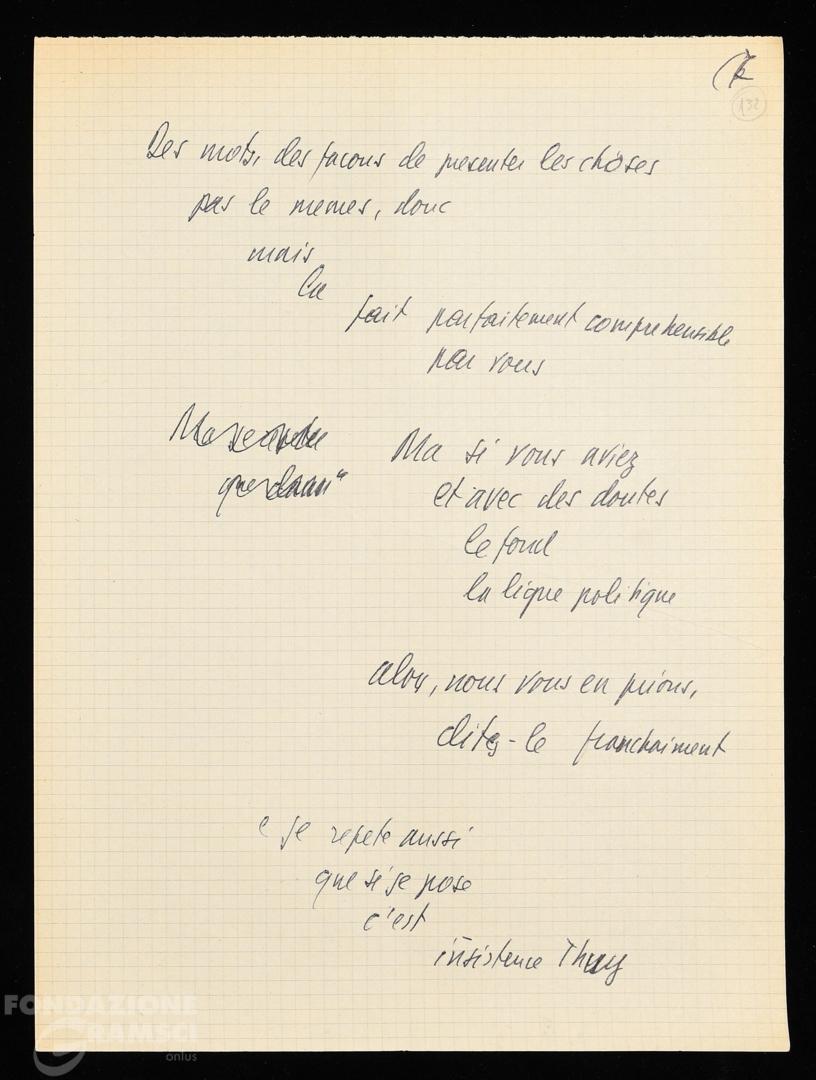 (k
132
Des mots, des facons de presenter les choses
pas le memes, donc
mais
Ca
fait parfaitement comprehensible
par vous
Ma si vous aviez
et avec des doutes
le fond
la ligne politique
alors, nous vous en prions,
dites-le franchaiment
e je repete aussi
que si je pose
c'est
insistence Thuy
FONDAZIONE
GRAMSCI
onlus